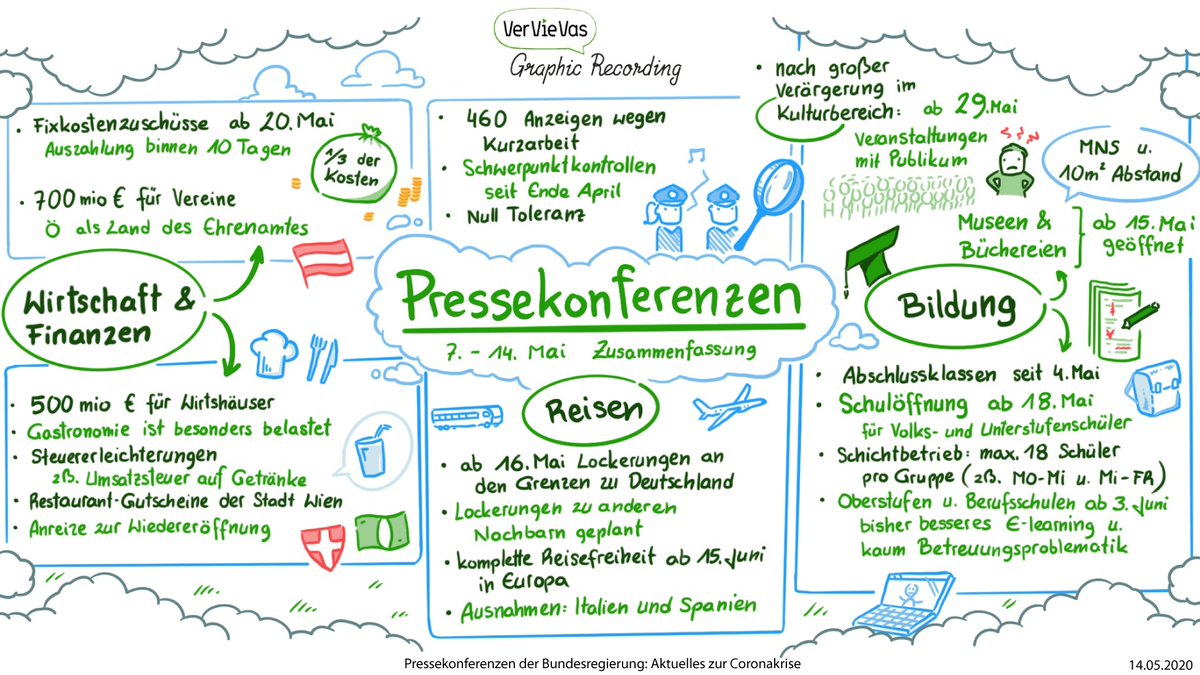 VerVieVas
Graphic Recording
• Fixkostenzuschüsse ab 20. Mai
Auszahlung binnen 10 Tagen
1/3 der
Kosten
• 700 mio € für Vereine
Ö als Land des Ehrenamtes
Wirtschaft &
Finanzen
• 500 mio € für Wirtshäuser
• Gastronomie ist besonders belastet
• Steuererleichterungen
zB. Umsatzsteuer auf Getränke
• Restaurant-Gutscheine der Stadt Wien
• Anreize zur Wiedereröffnung
• 460 Anzeigen wegen
Kurzarbeit
• Schwerpunktkontrollen
seit Ende April
• Null Toleranz
Pressekonferenzen
7. - 14. Mai Zusammenfassung
Reisen
• ab 16. Mai Lockerungen an
den Grenzen zu Deutschland
• Lockerungen zu anderen
Nachbarn geplant
• komplette Reisefreiheit ab 15. Juni
in Europa
• Ausnahmen: Italien und Spanien
• nach großer
Verärgerung im
Kulturbereich: ab 29. Mai
Veranstaltungen
mit Publikum
MNS u.
10m² Abstand
Museen &
Büchereien
ab 15. Mai
geöffnet
Bildung
• Abschlussklassen seit 4. Mai
• Schulöffnung ab 18. Mai
für Volks- und Unterstufenschüler
• Schichtbetrieb: max. 18 Schüler
pro Gruppe (zB. MO-Mi u. Mi-FR)
• Oberstufen u. Berufsschulen ab 3. Juni
bisher besseres E-learning u.
kaum Betreuungsproblematik
Pressekonferenzen der Bundesregierung: Aktuelles zur Coronakrise
14.05.2020